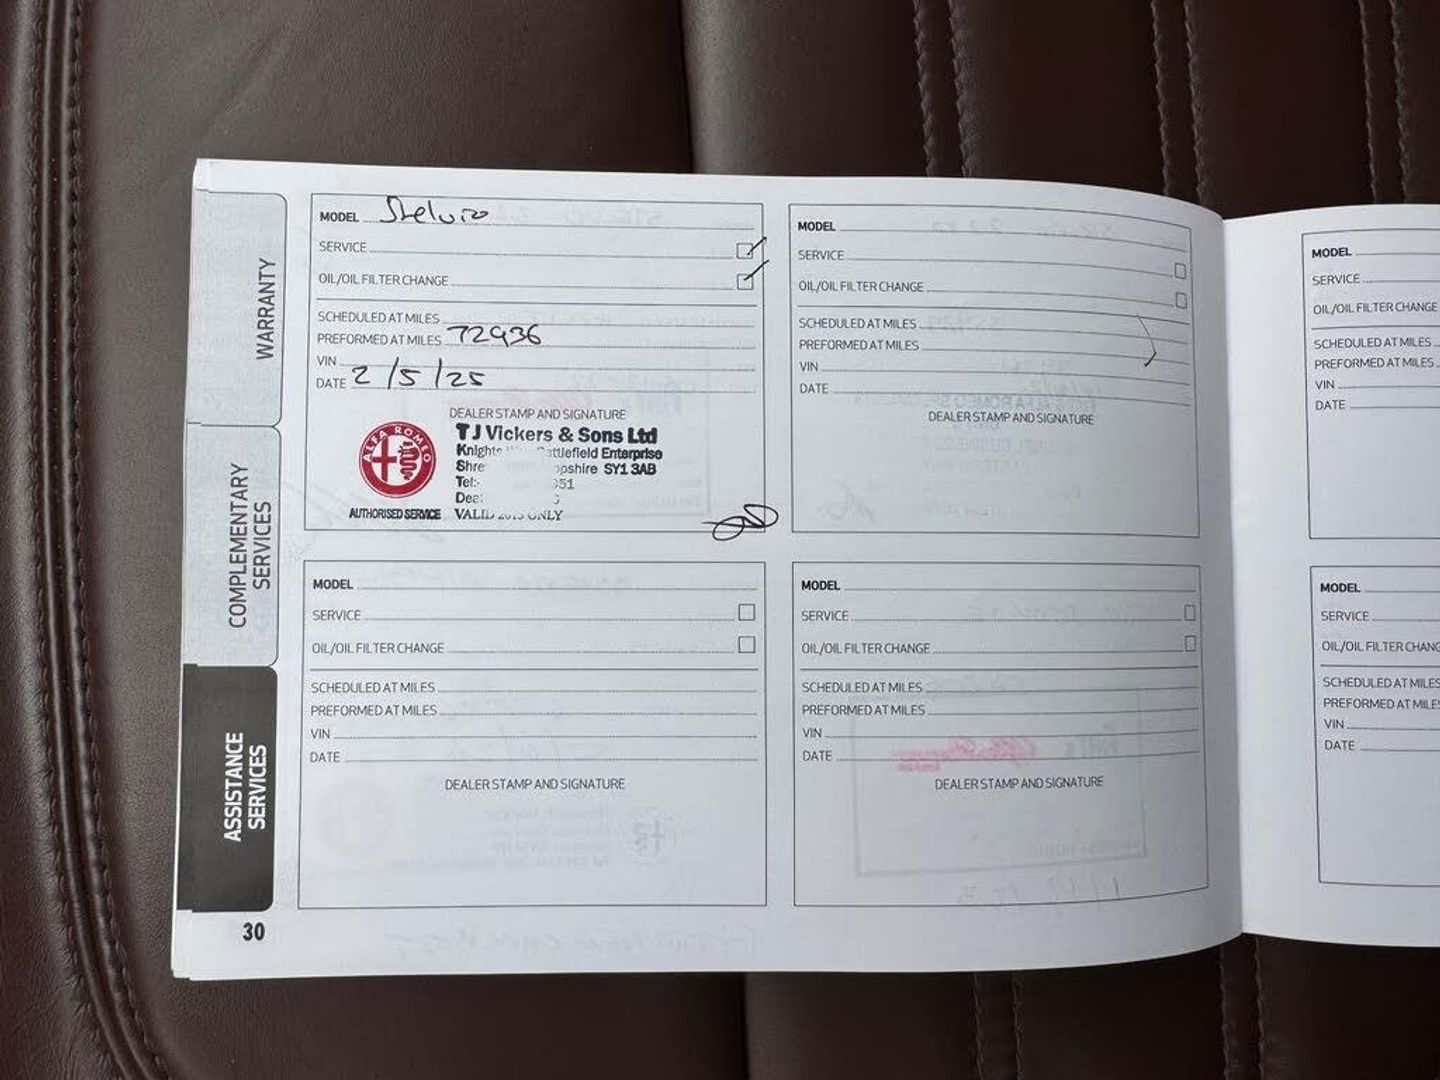 WARRANTY
COMPLEMENTARY
SERVICES
ASSISTANCE
SERVICES
30
MODEL Stelvio
SERVICE
OIL/OIL FILTER CHANGE
SCHEDULED AT MILES
PREFORMED AT MILES 72936
VIN
DATE 2/5/25
DEALER STAMP AND SIGNATURE
ALFA ROMEO
AUTHORISED SERVICE
TJ Vickers & Sons Ltd
Knights Battlefield Enterprise
Shre opshire SY1 3AB
Tel:- 351
Dea:
VALID ONLY
MODEL
SERVICE
OIL/OIL FILTER CHANGE
SCHEDULED AT MILES
PREFORMED AT MILES
VIN
DATE
DEALER STAMP AND SIGNATURE
MODEL
SERVICE
OIL/OIL FILTER CHANGE
SCHEDULED AT MILES
PREFORMED AT MILES
VIN
DATE
DEALER STAMP AND SIGNATURE
MODEL
SERVICE
OIL/OIL FILTER CHANGE
SCHEDULED AT MILES
PREFORMED AT MILES
VIN
DATE
DEALER STAMP AND SIGNATURE
MODEL
SERVICE
OIL/OIL FILTER CHANGE
SCHEDULED AT MILES
PREFORMED AT MILES
VIN
DATE
MODEL
SERVICE
OIL/OIL FILTER CHANG
SCHEDULED AT MILES
PREFORMED AT MILES
VIN
DATE